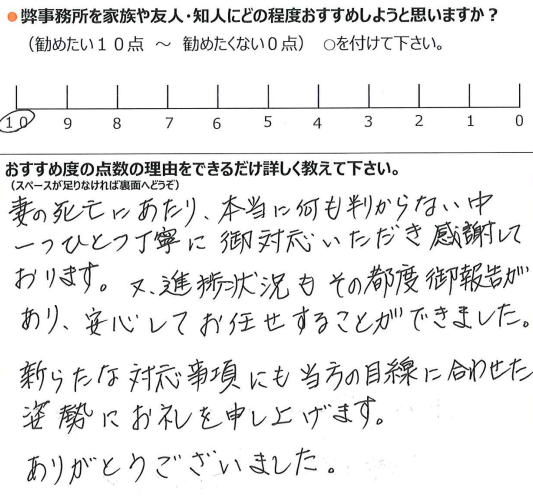 ●弊事務所を家族や友人・知人にどの程度おすすめしようと思いますか？
（勧めたい１０点　～　勧めたくない０点）　○を付けて下さい。
10 9 8 7 6 5 4 3 2 1 0
おすすめ度の点数の理由をできるだけ詳しく教えて下さい。
（スペースが足りなければ裏面へどうぞ）
妻の死亡にあたり、本当に何も判からない中
一つひとつ丁寧に御対応いただき感謝して
おります。又、進捗状況もその都度御報告が
あり、安心してお任せすることができました。
新らたな対応事項にも当方の目線に合わせた
姿勢にお礼を申し上げます。
ありがとうございました。